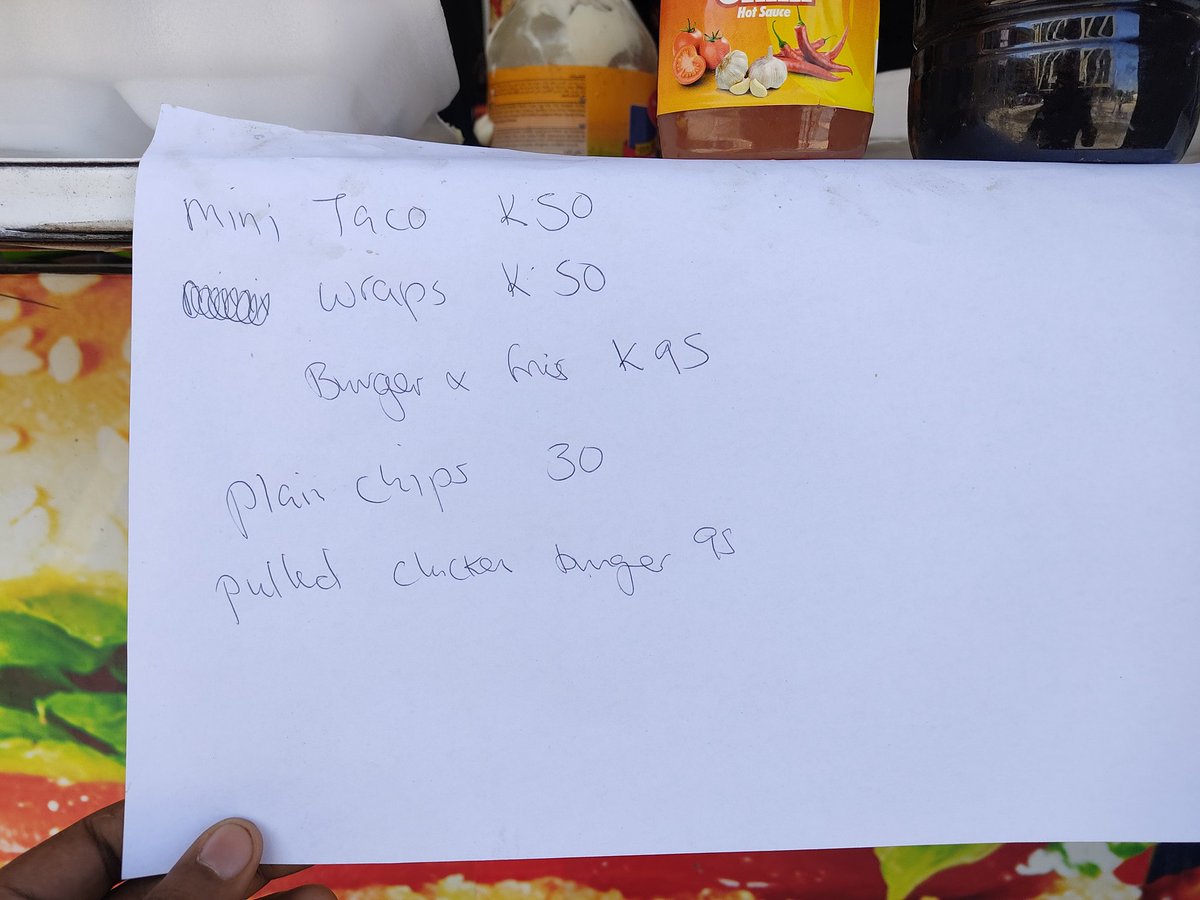 Hot Sauce
Mini Taco K50
wraps K50
Burger & fries K95
plain chips 30
pulled chicken burger 95